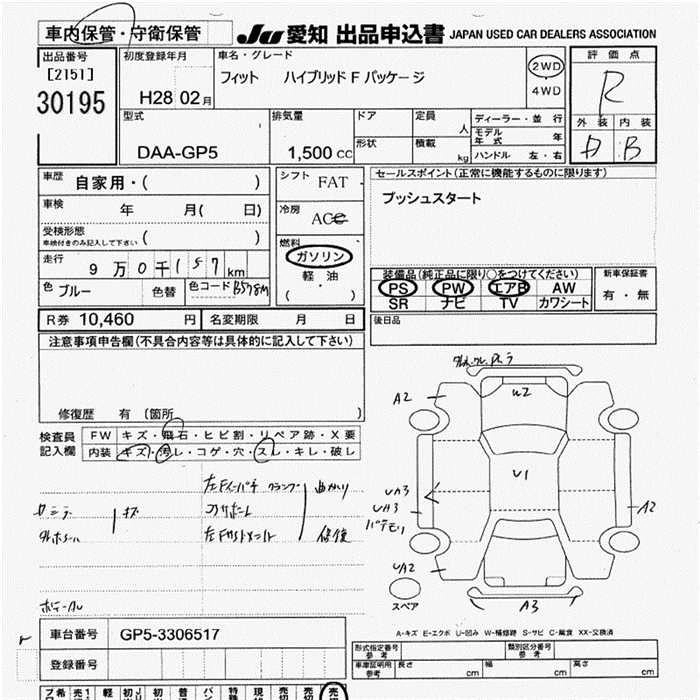 車内保管・守衛保管
JU 愛知 出品申込書 JAPAN USED CAR DEALERS ASSOCIATION
出品番号
[2151]
30195
初度登録年月
H28 02月
車名・グレード
フィット ハイブリッド F パッケージ
2WD
4WD
評価点
R
外装 内装
D B
型式
DAA-GP5
排気量
1,500 cc
ドア
形状
定員
人
積載
kg
ディーラー・並行
モデル年式 年
ハンドル 左・右
車歴
自家用・( )
車検
年 月( 日)
受検形態
車検付きのみ記入して下さい
( )
走行
9万0千157km
色 ブルー 色替 色コード B578M
シフト FAT
冷房 AC
燃料
ガソリン
軽・油
( )
セールスポイント(正常に機能するものに限ります)
プッシュスタート
装備品(純正品に限り○をつけてください)
PS PW エアB AW
SR ナビ TV カワシート
新車保証書
有・無
R券 10,460 円 名変期限 月 日
後日品
注意事項申告欄(不具合内容等は具体的に記入して下さい)
修復歴 有 (箇所 )
検査員
記入欄
FW キズ・飛石・ヒビ割・リペア跡・X要
内装 キズ・汚レ・コゲ・穴・スレ・キレ・破レ
キズ
曲がり
修復
A2
U2
U1
UA3
UA3
UA2
A2
A3
スペア
A-キズ E-エクボ U-凹み W-補修跡 S-サビ C-腐食 XX-交換済
車台番号 GP5-3306517
登録番号
形式指定番号
参考
類別区分番号
参考
車庫証明用
参考
長さ cm
幅 cm
高さ cm